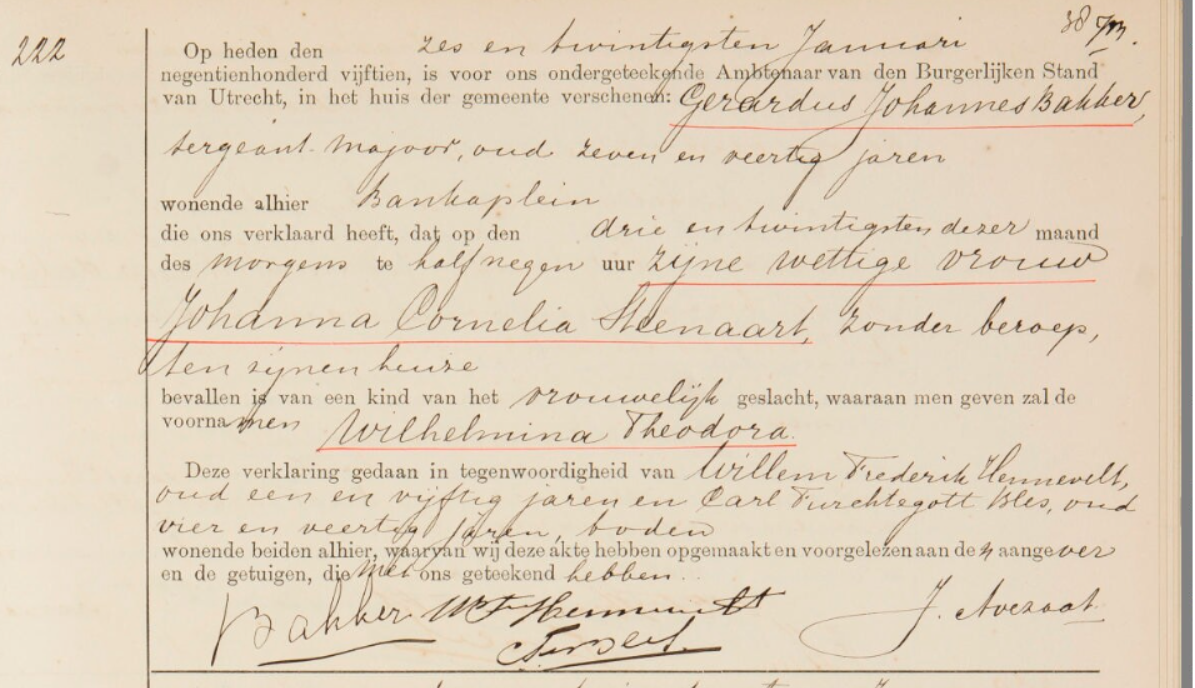 222
Op heden den zes en twintigsten Januari
negentienhonderd vijftien, is voor ons ondergeteekende Ambtenaar van den Burgerlijken Stand
van Utrecht, in het huis der gemeente verschenen: Gerardus Johannes Bakker,
sergeant-majoor, oud zeven en veertig jaren
wonende alhier Bankaplein
die ons verklaard heeft, dat op den drie en twintigsten dezer maand
des morgens te half negen uur zijne wettige vrouw
Johanna Cornelia Steenaart, zonder beroep,
ten zijnen huize
bevallen is van een kind van het vrouwelijk geslacht, waaraan men geven zal de
voornamen Wilhelmina Theodora.
Deze verklaring gedaan in tegenwoordigheid van Willem Frederik Hennevelt,
oud een en vijftig jaren en Carl Furchtegott Bles, oud
vier en veertig jaren, boden
wonende beiden alhier, waarvan wij deze akte hebben opgemaakt en voorgelezen aan den aangever
en de getuigen, die met ons geteekend hebben.
Bakker J. Avezaat